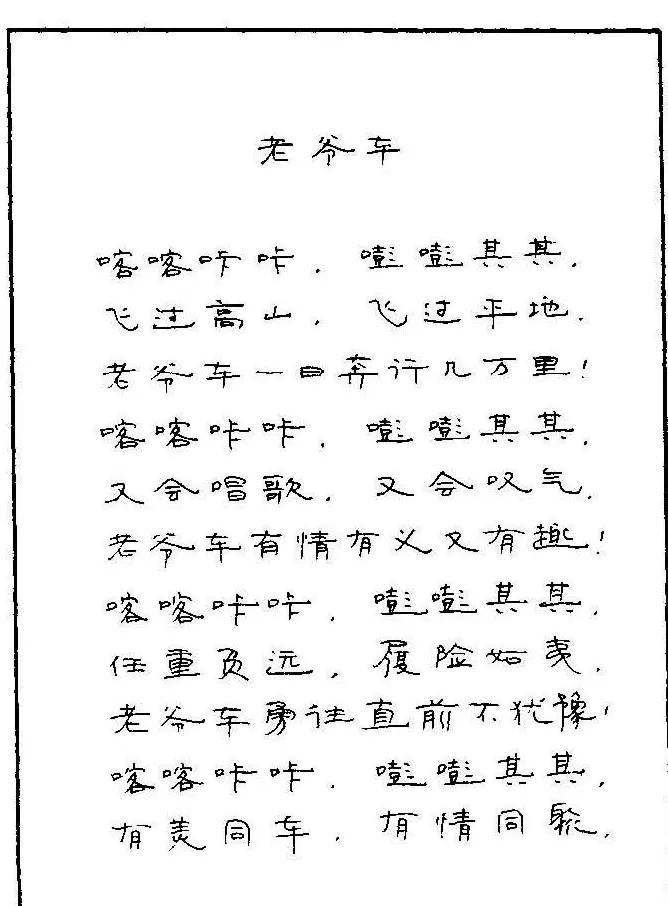 老爷车
喀喀咔咔，嘭嘭其其，
飞过高山，飞过平地，
老爷车一日奔行几万里！
喀喀咔咔，嘭嘭其其，
又会唱歌，又会叹气，
老爷车有情有义又有趣！
喀喀咔咔，嘭嘭其其，
任重负远，履险如夷，
老爷车勇往直前不犹豫！
喀喀咔咔，嘭嘭其其，
有美同车，有情同聚，